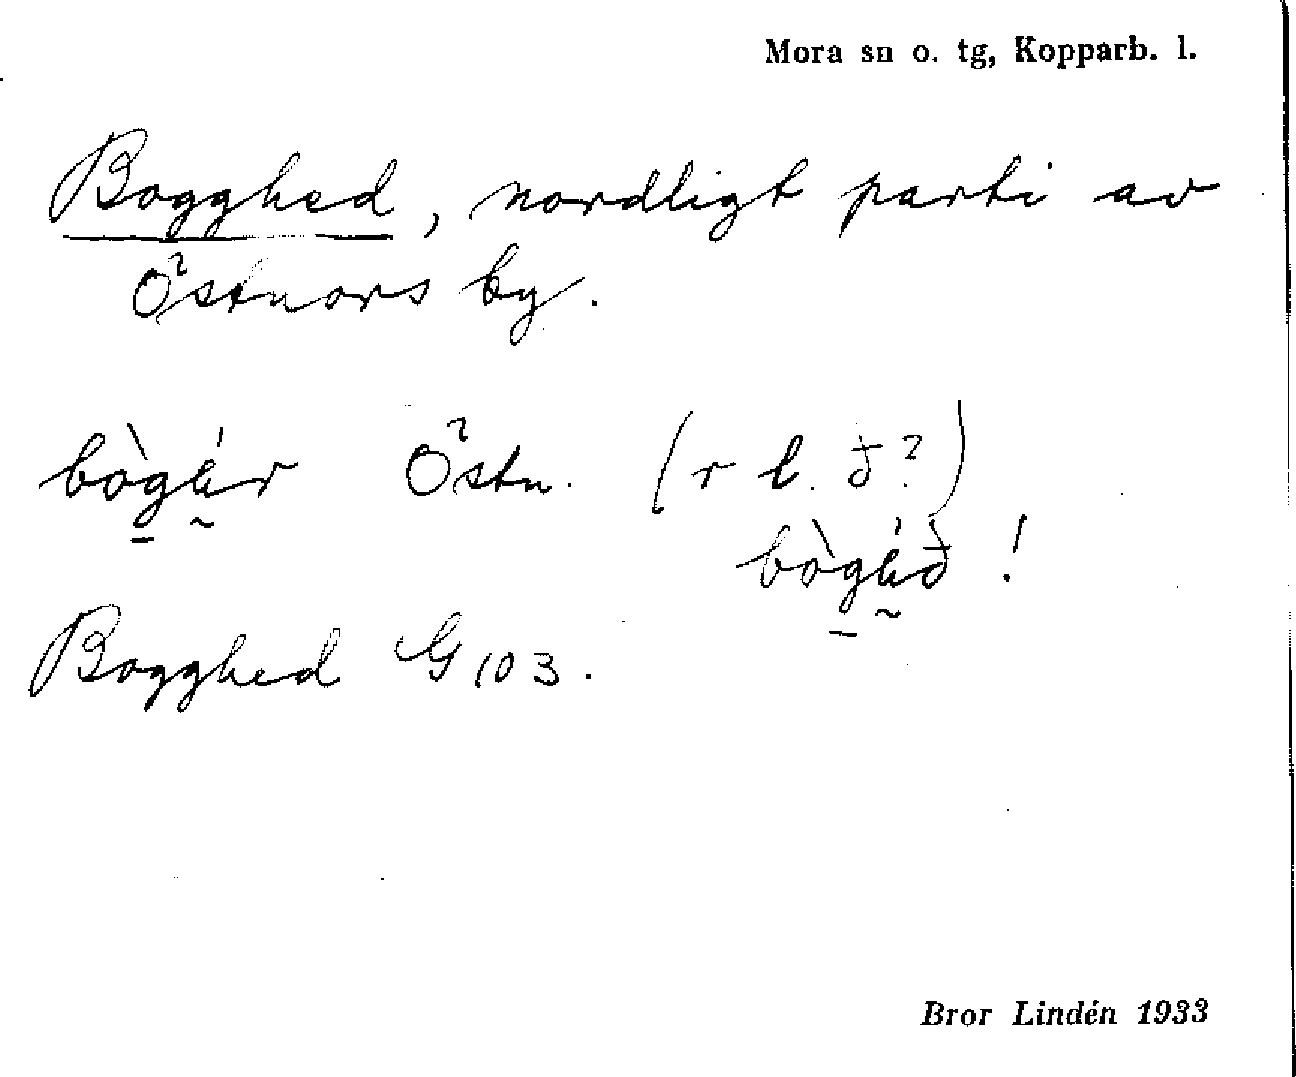 Mora sn o. tg, Kopparb. l.
Bogghed, nordligt parti av
Östnors by.
bògér Östn. (r l. ð?)
bògéð !
Bogghed G 103.
Bror Lindén 1933